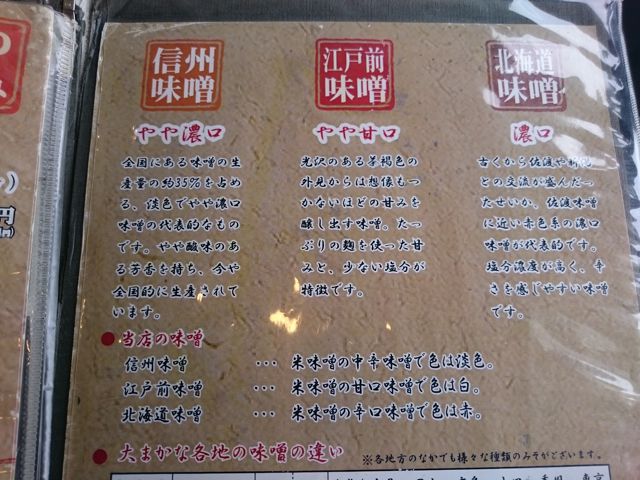 信州
味噌
江戸前
味噌
北海道
味噌
やや濃口
やや甘口
濃口
全国にある味噌の生
産量の約35%を占め
る、淡色でやや濃口
味噌の代表的なもの
です。やや酸味のあ
る芳香を持ち、今や
全国的に生産されて
います。
光沢のある茶褐色の
外見からは想像もつ
かないほどの甘みを
醸し出す味噌。たっ
ぷりの麹を使った甘
みと、少ない塩分が
特徴です。
古くから佐渡や新潟
との交流が盛んだっ
たせいか、佐渡味噌
に近い赤色系の濃口
味噌が代表的です。
塩分濃度が高く、辛
さを感じやすい味噌
です。
●当店の味噌
信州味噌 … 米味噌の中辛味噌で色は淡色。
江戸前味噌 … 米味噌の甘口味噌で色は白。
北海道味噌 … 米味噌の辛口味噌で色は赤。
●大まかな各地の味噌の違い ※各地方のなかでも様々な種類のみそがございます。
円